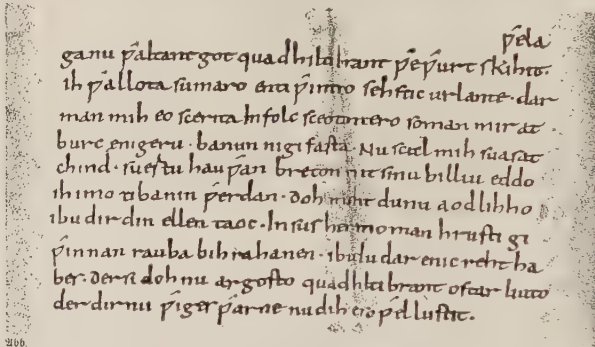 ƿela
ganu ƿaltant got quad hiltibrant ƿeƿurt skihit.
ih ƿallota sumaro enti ƿintro sehstic urlante. dar
man mih eo scerita In folc sceotantero so man mir at
burc enigeru. banun ni gifasta. Nu scal mih suasat
chind. suertu hauƿan breton mit sinu billiu eddo
ih imo ti banin ƿerdan. doh maht du nu aodlihho
ibu dir din ellen taoc. In sus heremo man hrusti gi
ƿinnan rauba bihrahanen. ibu du dar enic reht ha
bes. der si doh nu argosto quad hiltibrant ostar liuto
der dir nu ƿiges ƿarne nu dih es so ƿel lustit.
Abb.